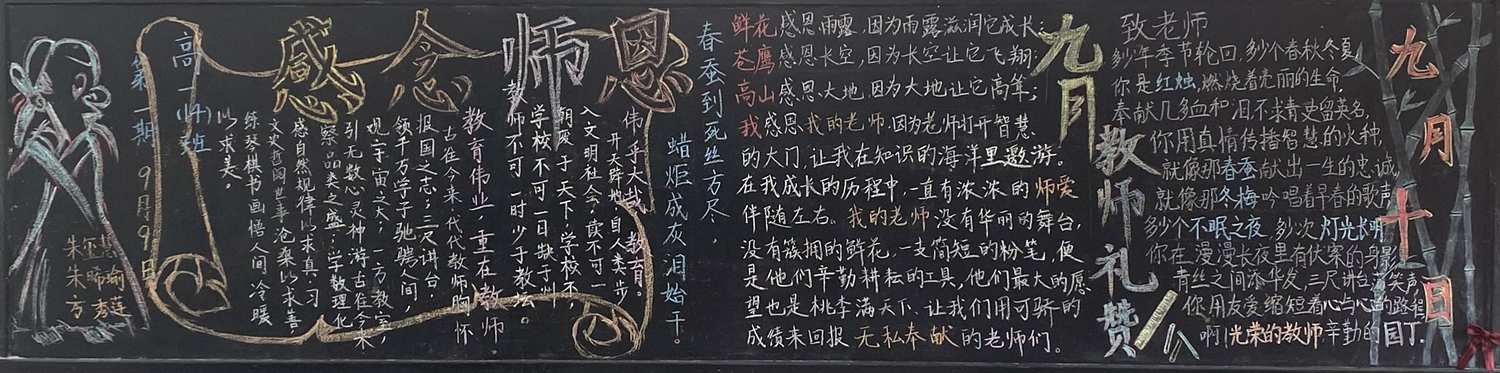 高一(忄)班
第一期 9月9日
感念师恩
伟乎大哉，教育。
开天辟地，自人类步
入文明社会，
朝废于天下，学校不
学校不可一日缺于州
教师不可一时少于教坛。
教育伟业，重在教师。
古往今来，代代教师胸怀
报国之志；三尺讲台，
领千万学子驰骋人间，
观宇宙之大；一方教室，
引无数心灵神游古往今来
察品类之盛；学数理化
感自然规律以求真，习
文史哲阅世事沧桑以求善
练琴棋书画悟人间冷暖
以求美。
朱玺慧
朱晞瑜
方秀莲
春蚕到死丝方尽，
蜡炬成灰泪始干。
鲜花感恩雨露，因为雨露滋润它成长；
苍鹰感恩长空，因为长空让它飞翔；
高山感恩大地，因为大地让它高耸；
我感恩我的老师，因为老师打开智慧
的大门，让我在知识的海洋里遨游。
在我成长的历程中，一直有浓浓的师爱
伴随左右。我的老师没有华丽的舞台，
没有簇拥的鲜花，一支简短的粉笔，便
是他们辛勤耕耘的工具，他们最大的愿
望也是桃李满天下，让我们用可骄的
成绩来回报无私奉献的老师们。
九月
教师礼赞
致老师
多少年季节轮回，多少个春秋冬夏，
你是红烛，燃烧着亮丽的生命，
奉献几多血和泪不求青史留英名，
你用真情传播智慧的火种，
就像那春蚕献出一生的忠诚
就像那冬梅吟唱着早春的歌声
多少个不眠之夜，多少次灯光长明，
你在漫漫长夜里有伏案的身影
青丝之间添华发，三尺讲台荡笑声
你用友爱缩短着心与心的路程
啊！光荣的教师辛勤的园丁.
九月十日